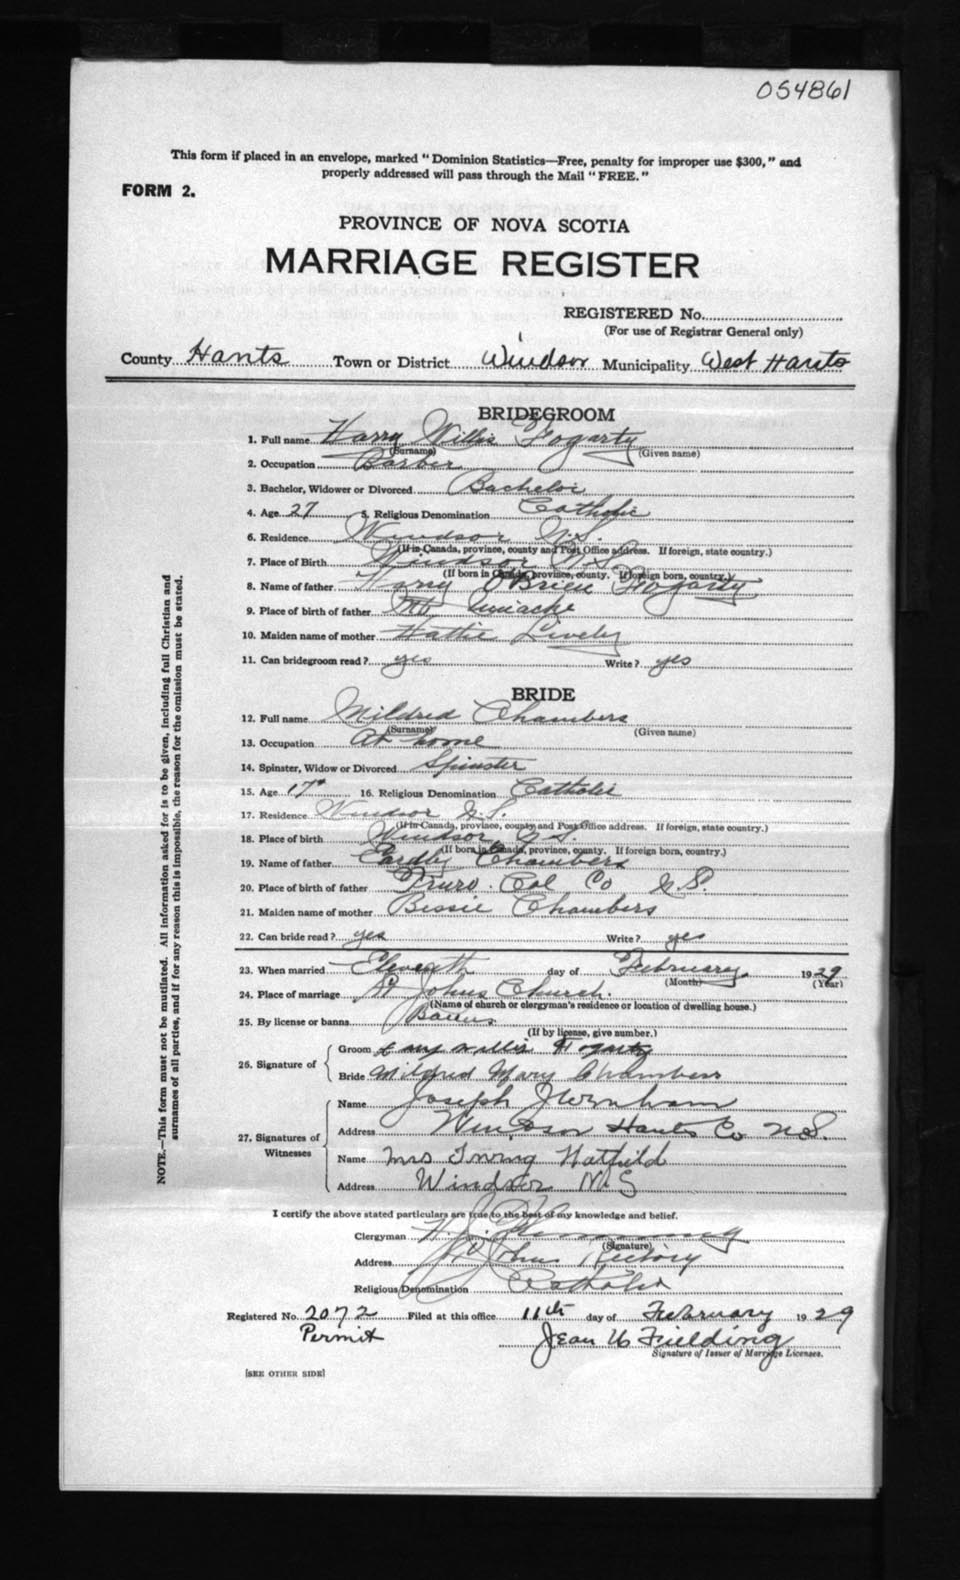 054861
This form if placed in an envelope, marked "Dominion Statistics—Free, penalty for improper use $300," and
properly addressed will pass through the Mail "FREE."
FORM 2.
PROVINCE OF NOVA SCOTIA
MARRIAGE REGISTER
REGISTERED No.
(For use of Registrar General only)
County Hants Town or District Windsor Municipality West Hants
BRIDEGROOM
1. Full name Harry Willis Fogarty
(Surname) (Given name)
2. Occupation Barber
3. Bachelor, Widower or Divorced Bachelor
4. Age 27 5. Religious Denomination Catholic
6. Residence Windsor N.S.
(If in Canada, province, county and Post Office address. If foreign, state country.)
7. Place of Birth Windsor N.S.
(If born in Canada, province, county. If foreign born, country.)
8. Name of father Harry O'Brien Fogarty
9. Place of birth of father Mt Uniacke
10. Maiden name of mother Hattie Lively
11. Can bridegroom read? yes Write? yes
BRIDE
12. Full name Mildred Chambers
(Surname) (Given name)
13. Occupation At home
14. Spinster, Widow or Divorced Spinster
15. Age 17 16. Religious Denomination Catholic
17. Residence Windsor N.S.
(If in Canada, province, county and Post Office address. If foreign, state country.)
18. Place of birth Windsor N.S.
(If born in Canada, province, county. If foreign born, country.)
19. Name of father Chambers
20. Place of birth of father Truro Col Co N.S.
21. Maiden name of mother Bessie Chambers
22. Can bride read? yes Write? yes
23. When married Eleventh day of February 1929
(Month) (Year)
24. Place of marriage St Johns Church.
(Name of church or clergyman's residence or location of dwelling house.)
25. By license or banns Banns
(If by license, give number.)
26. Signature of
Groom Harry Willis Fogarty
Bride Mildred Mary Chambers
27. Signatures of Witnesses
Name Joseph
Address Windsor Hants Co N.S.
Name Mrs Irving Hatfield
Address Windsor N.S
I certify the above stated particulars are true to the best of my knowledge and belief.
Clergyman
(Signature)
Address St Johns Rectory
Religious Denomination Catholic
Registered No. 2072 Filed at this office 11th day of February 1929
Permit Jean W Fielding
Signature of Issuer of Marriage Licenses.
[SEE OTHER SIDE]
NOTE.—This form must not be mutilated. All information asked for is to be given, including full Christian and
surnames of all parties, and if for any reason this is impossible, the reason for the omission must be stated.